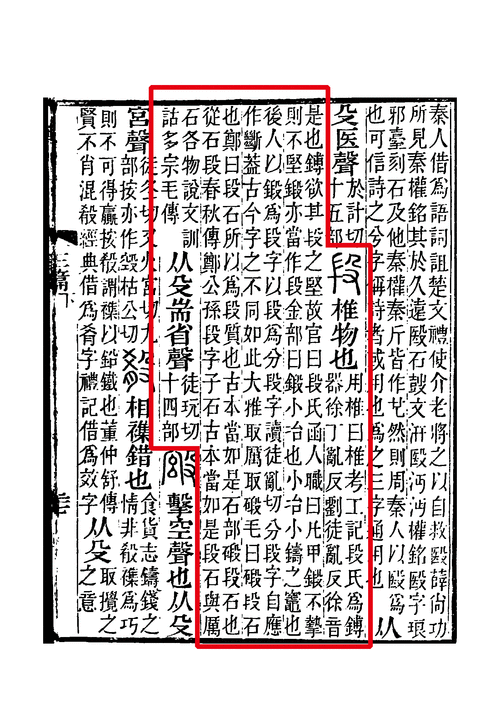 秦人借爲語詞詛楚文禮使介老將之以自救殹薛尚功
所見秦權銘其於久遠殹石鼓文汧殹沔沔權銘殹字琅
邪臺刻石及他秦權秦斤皆作殹然則周秦人以殹爲
也可信詩之兮字偁詩者或用也爲之三字通用也 从
殳医聲 於計切十五部 段 椎物也 用椎曰椎考工記段氏爲鎛
器徐丁亂反劉徒亂反徐音
是也鎛欲其段之堅故官曰段氏函人職曰凡甲鍛不摯
則不堅鍛亦當作段金部曰鍛小冶也小冶小鑄之竈也
後人以鍛爲段字以段爲分段字讀徒亂切分段字自應
作斷葢古今字之不同如此大雅取厲取碫毛曰碫段石
也鄭曰段石所以爲段質也古本當如是石部碫段石也
從石段春秋傳鄭公孫段字子石古本當如是段石與厲
石各物說文訓詁多宗毛傳 从殳耑省聲 徒玩切十四部 擊空聲也从殳
宮聲 徒冬切又火宮切九部按亦作枯公切 殽 相襍錯也 食貨志鑄錢之情非殽襍爲巧
則不可得贏按殽謂襍以鉛鐵也董仲舒傳
賢不肖混殽經典借爲肴字禮記借爲效字 从殳 取攪之之意
三篇下
三十